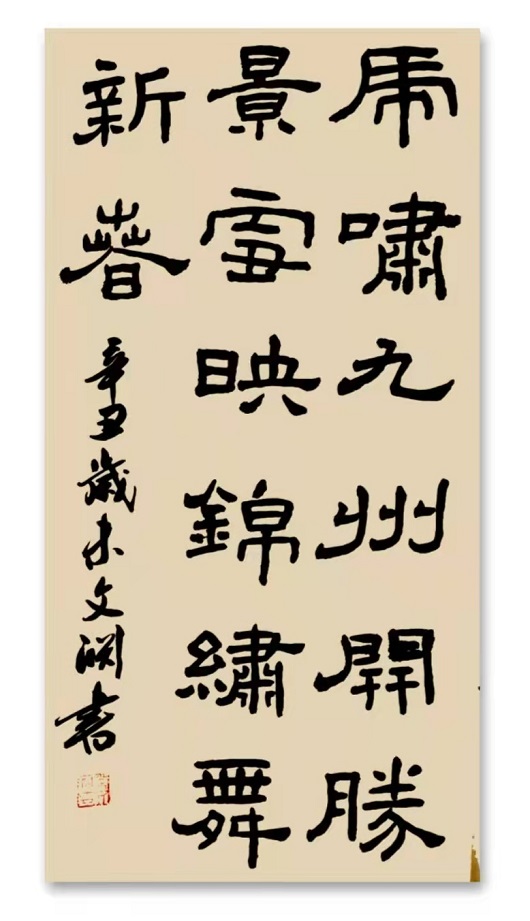 虎嘯九州開勝
景雪映錦繡舞
新春
辛丑歲末文閣書